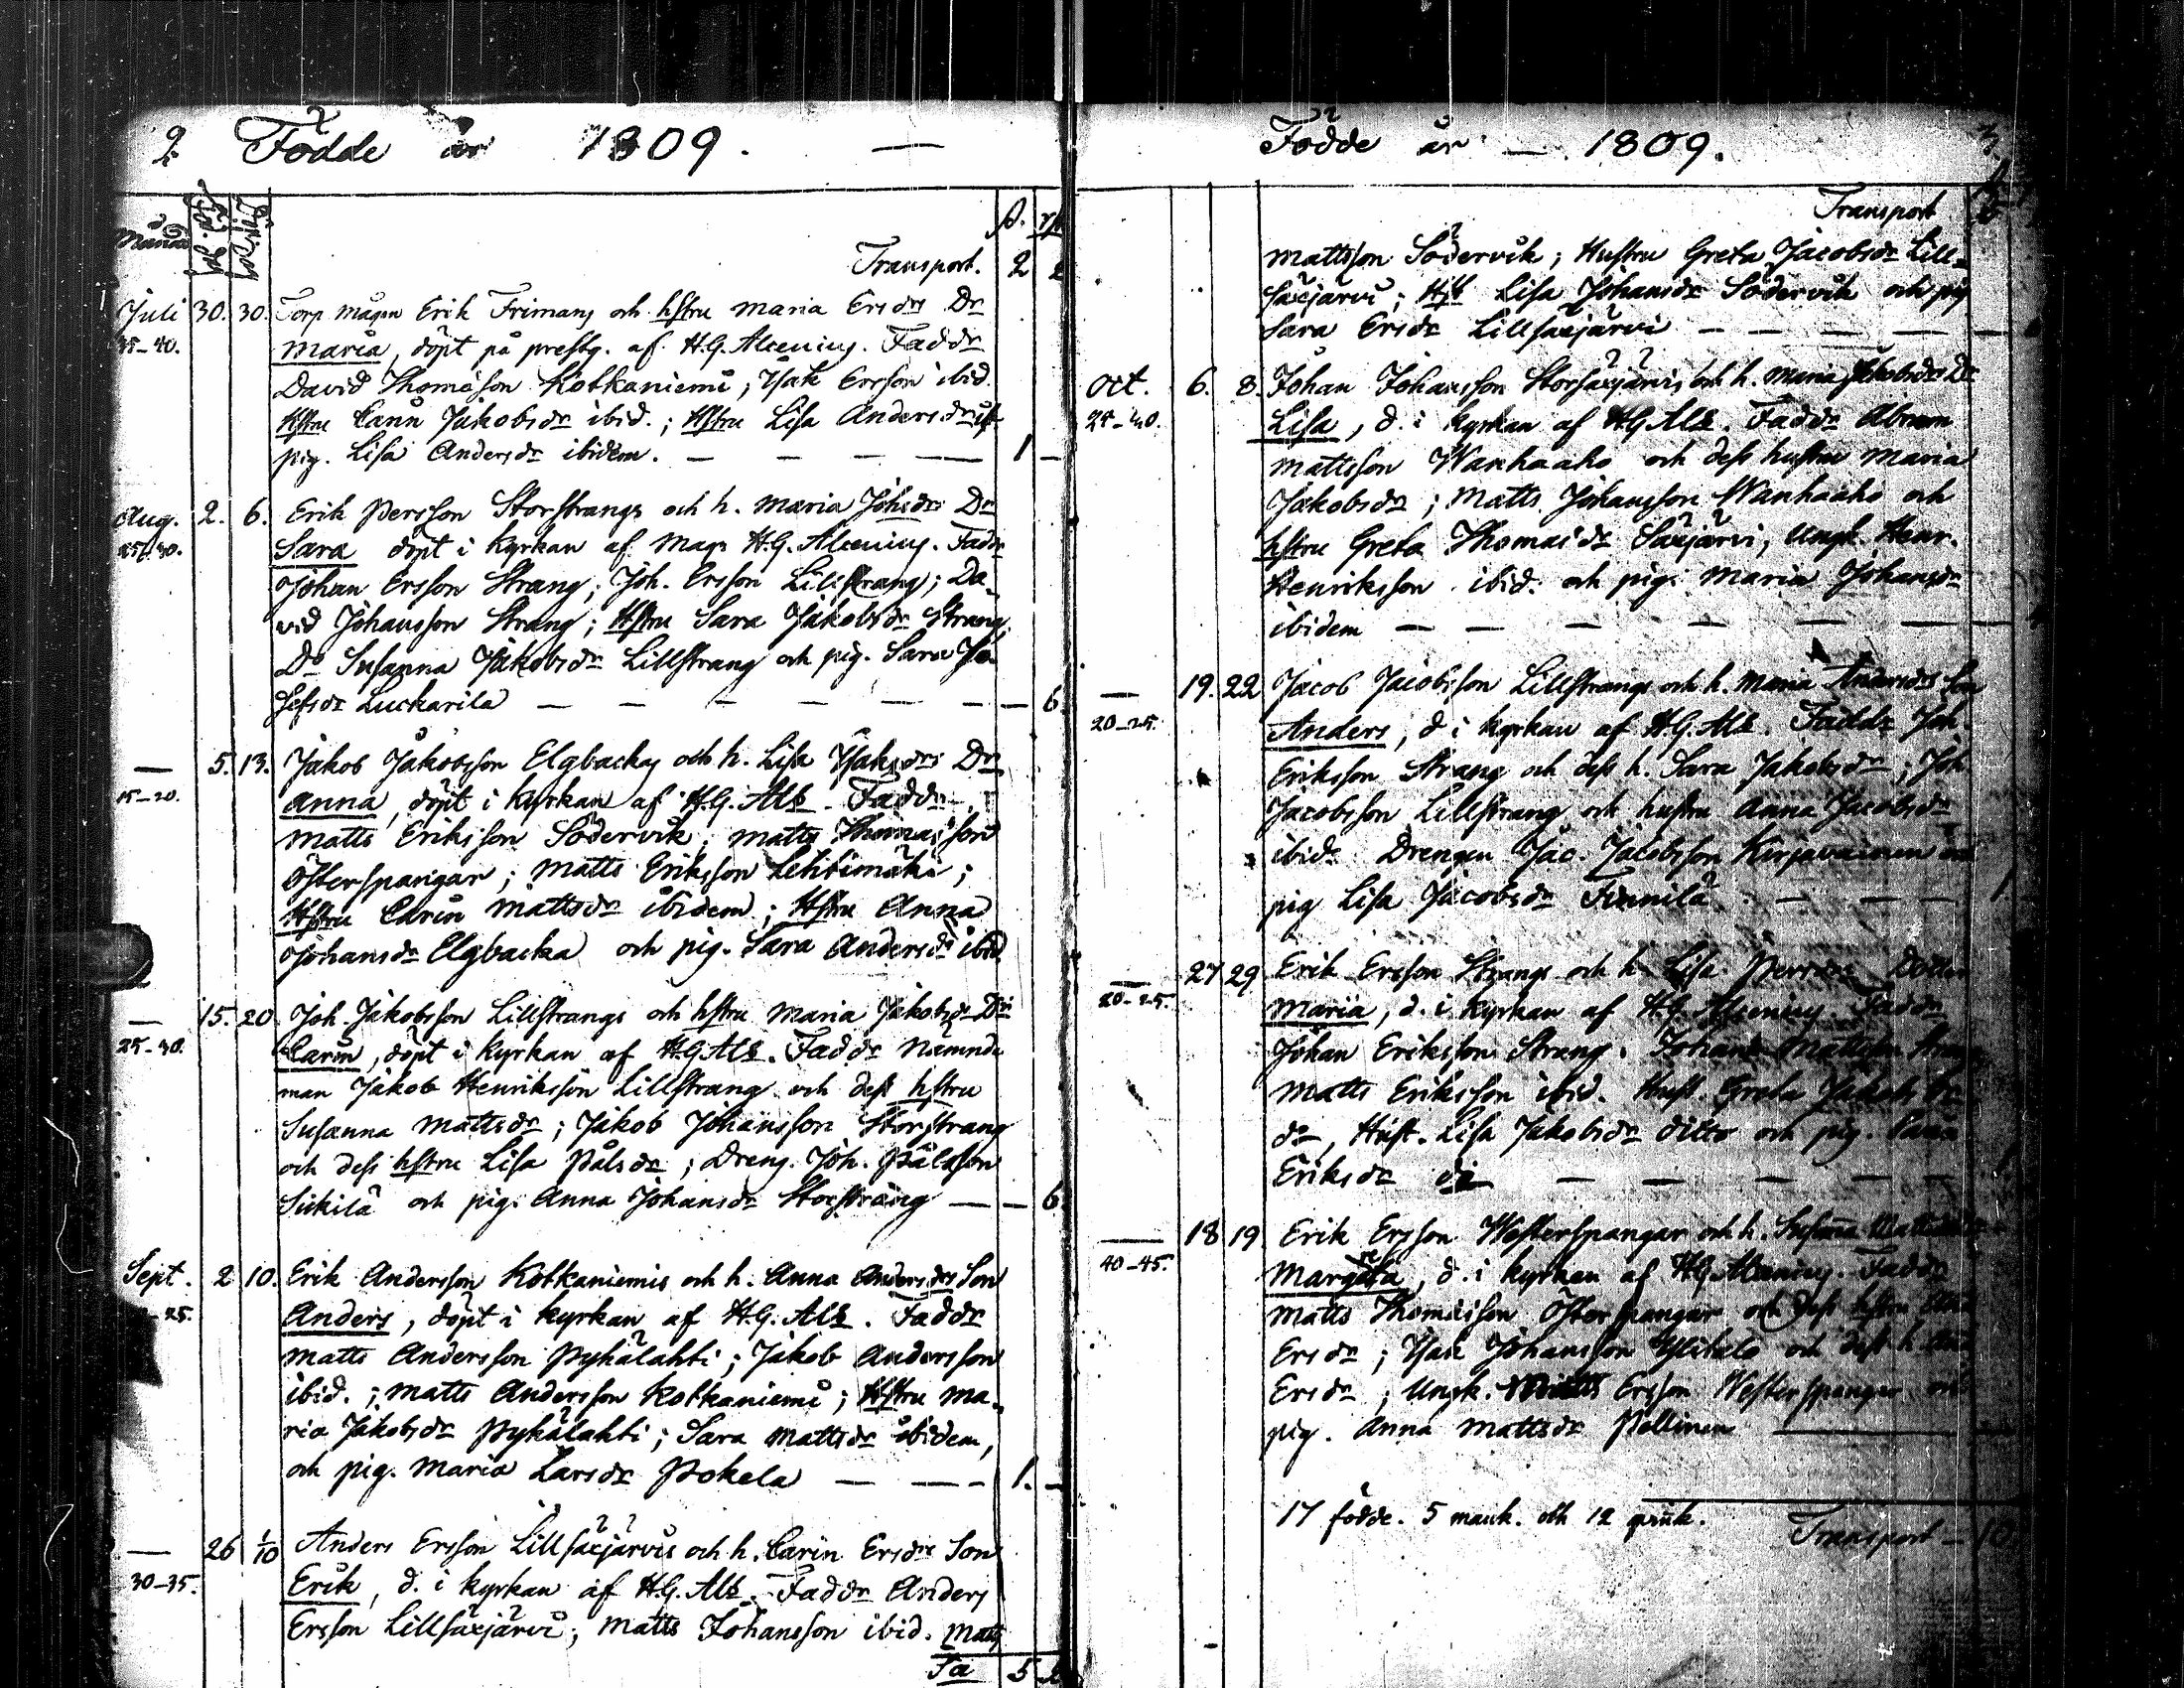 2. Födde år 1809. —
Månad Föd. dag Döp. dag
Transport. 2 2
Juli 30. 30. Torp mågen Erik Frimans och hstru Maria Ersdrs Dr
35-40. Maria, döpt på prestg. af H.G. Alcenius. Faddr
David Thomasson Kotkaniemi; Isak Ersson ibid.
Hstru Carin Jakobsdr ibid.; Hstru Lisa Andersdr
pig. Lisa Andersdr ibidem. — — — — 1 —
Aug. 2. 6. Erik Persson Storstrangs och h. Maria Johsdrs Dr
25-30. Sara döpt i kyrkan af Mag. H.G. Alcenius. Faddr
Johan Ersson Strang; Joh. Ersson Lillstrang; Da-
vid Johansson Strang; Hstru Sara Jakobsdr Strang;
Do Susanna Jakobsdr Lillstrang och pig. Sara Jo-
sefsdr Luckarila — — — — — — — 6
— 5. 13. Jakob Jakobsson Elgbackas och h. Lisa Isaksdrs Dr
15-20. Anna, döpt i kyrkan af H.G. Als. Faddr
Matts Eriksson Södervik; Matts Thomasson
Österspangar; Matts Eriksson Lehtimäki;
Hstru Carin Mattsdr ibidem; Hstru Anna
Johansdr Elgbacka och pig. Sara Andersdr ibid
— 15. 20. Joh. Jakobsson Lillstrangs och hstru Maria Jakobsdrs Dr
25-30. Carin, döpt i kyrkan af H.G. Als. Faddr Nämnde
man Jakob Henriksson Lillstrang och dess hstru
Susanna Mattsdr; Jakob Johansson Storstrang
och dess hstru Lisa Pålsdr; Dreng. Joh. Pålsson
Sikilä och pig. Anna Johansdr Storstrang — — 6
Sept. 2 10. Erik Andersson Kotkaniemis och h. Anna Andersdrs Son
-25. Anders, döpt i kyrkan af H.G. Als. Faddr
Matts Andersson Pyhälahti; Jakob Andersson
ibid.; Matts Andersson Kotkaniemi; Hstru Ma-
ria Jakobsdr Pyhälahti; Sara Mattsdr ibidem,
och pig. Maria Larsdr Pokela — — — 1. —
— 26 1/10 Anders Ersson Lillsäxjärvis och h. Carin Ersdrs Son
30-35. Erik, d. i kyrkan af H.G. Als. Faddr Anders
Ersson Lillsäxjärvi; Matts Johansson ibid. Matts
Sa 5 2
Födde år — 1809. 3.
Transport
Mattsson Södervik; Hustru Greta Jacobsdr Lill-
säxjärvi; Lisa Johansdr Södervik och pig
Sara Ersdr Lillsäxjärvi — — — — —
Oct. 6. 8. Johan Johansson Storsäxjärvis och h. Maria Jakobsdrs Dr
24-40. Lisa, d. i kyrkan af H.G. Als. Faddr Abram
Mattsson Wanhaaho och dess hustru Maria
Jakobsdr; Matts Johansson Wanhaaho och
hstru Greta Thomasdr Säxjärvi; Ungk. Henr.
Henriksson ibid. och pig. Maria Johansdr
ibidem — — — — — —
— 19. 22 Jacob Jacobsson Lillstrangs och h. Maria Andersdrs Son
20-25. Anders, d. i kyrkan af H.G. Als. Faddr Joh.
Eriksson Strang och dess h. Sara Jakobsdr; Joh.
Jacobsson Lillstrang och hustru Anna Jacobsdr
ibid. Drengen Jac. Jacobsson Kirjavainen
pig Lisa Jacobsdr Finnilä — — — 1.
— 27 29 Erik Ersson Strangs och h. Lisa Dotter
20-25. Maria, d. i kyrkan af H.G. Alcenius. Faddr
Johan Eriksson Strang. Johan Mattsson
Matts Eriksson ibid. Hust. Greta
do, Hust. Lisa Jakobsdr ditto och pig.
Eriksdr do — — — — —
— 18 19 Erik Ersson Westerspangar och h. Susanna
40-45. Margreta, d. i kyrkan af H.G. Alcenius. Faddr
Matts Thomasson Österspangar och dess hstru
Ersdr; Isak Johansson och dess h.
Ersdr; Ungk. Matts Ersson Westerspangar
pig. Anna Mattsdr Pellinen —
17 födde. 5 mank. och 12 qvink.
Transport — 10